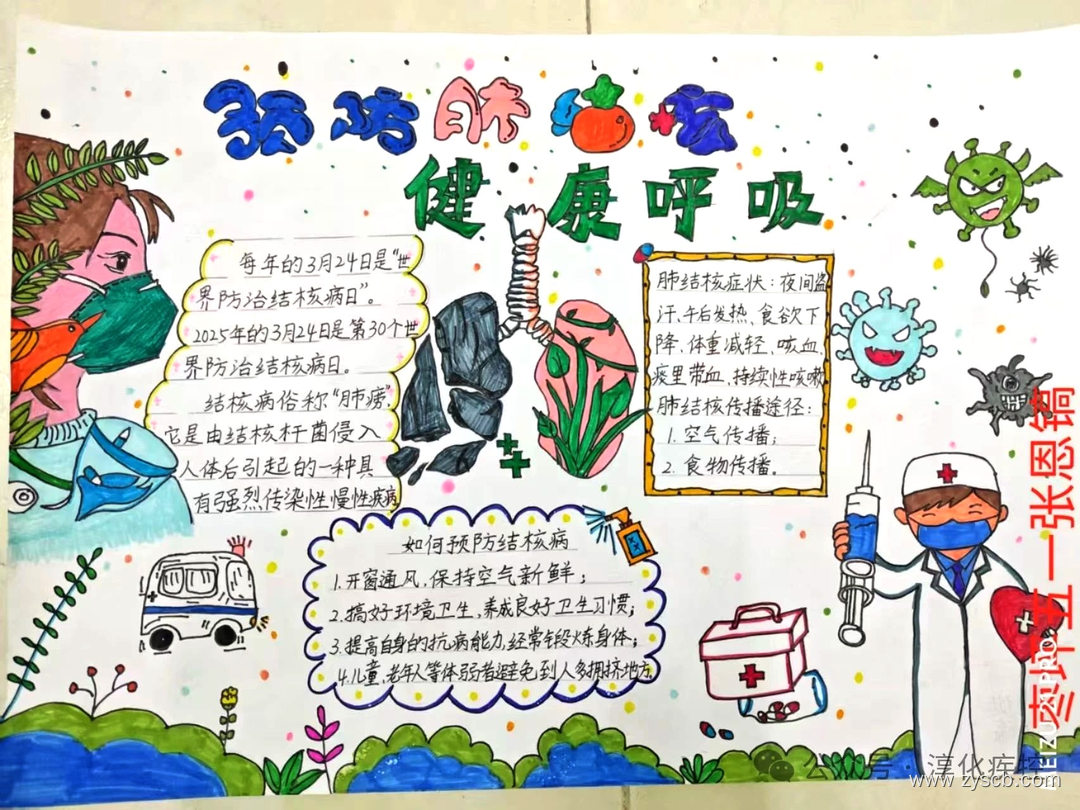 预防肺结核
健康呼吸
每年的3月24日是“世
界防治结核病日”。
2025年的3月24日是第30个世
界防治结核病日。
结核病俗称“肺痨”
它是由结核杆菌侵入
人体后引起的一种具
有强烈传染性慢性疾病
肺结核症状：夜间盗
汗、午后发热、食欲下
降、体重减轻、咳血、
痰里带血、持续性咳嗽
肺结核传播途径：
1.空气传播；
2.食物传播。
如何预防结核病
1.开窗通风，保持空气新鲜；
2.搞好环境卫生，养成良好卫生习惯；
3.提高自身的抗病能力，经常锻炼身体；
4.儿童、老年人等体弱者避免到人多拥挤地方。
枣坪五一张恩镐
公众号·淳化疾控
www.zyscb.com